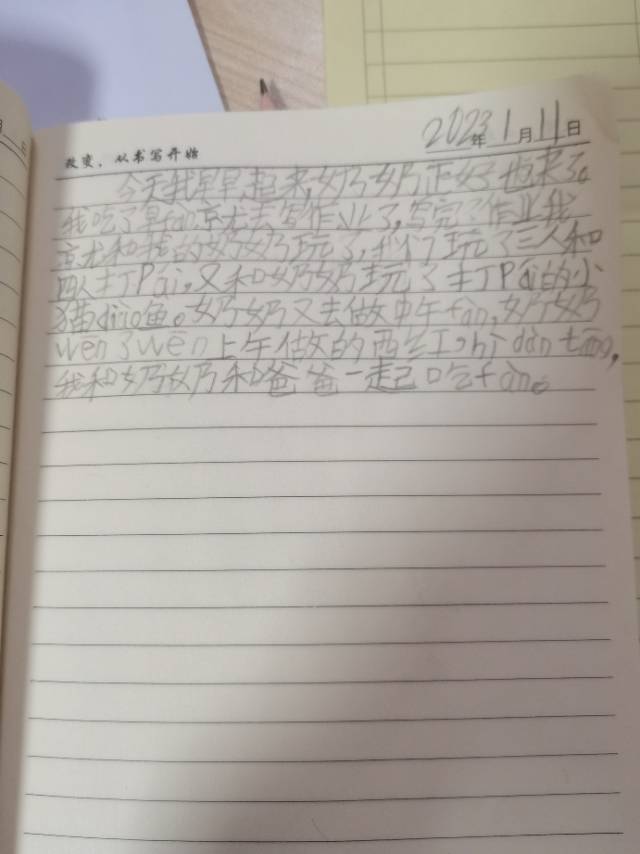 2023年1月11日
改变，从书写开始
今天我早早起来，奶奶正好也来了。
我吃了早fàn，京尤去写作业了，写完了作业我
京尤和我的奶奶玩了，我们玩了三人和
四人打Pái，又和奶奶玩了打Pái的小
猫diào鱼。奶奶又去做中午fàn，奶奶
wēn了wēn上午做的西红shì dàn tāng，
我和奶奶和爸爸一起吃fàn。